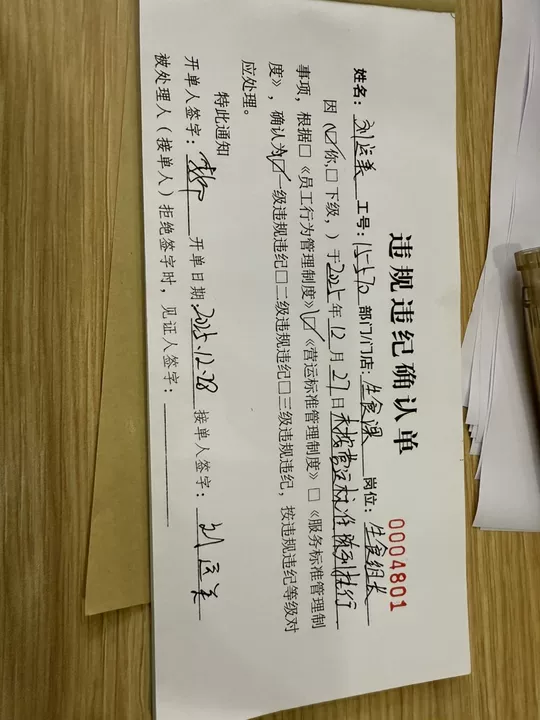 违规违纪确认单
0004801
姓名：刘运美 工号：15570 部门/门店：生食课 岗位：生食组长
因（☑你，□下级，）于2025年12月27日未按营运标准陈列执行
事项，根据□《员工行为管理制度》☑《营运标准管理制度》□《服务标准管理制
度》，确认为☑一级违规违纪□二级违规违纪□三级违规违纪，按违规违纪等级对
应处理。
特此通知
开单人签字： 开单日期：2025.12.28 接单人签字：刘运美
被处理人（接单人）拒绝签字时，见证人签字：